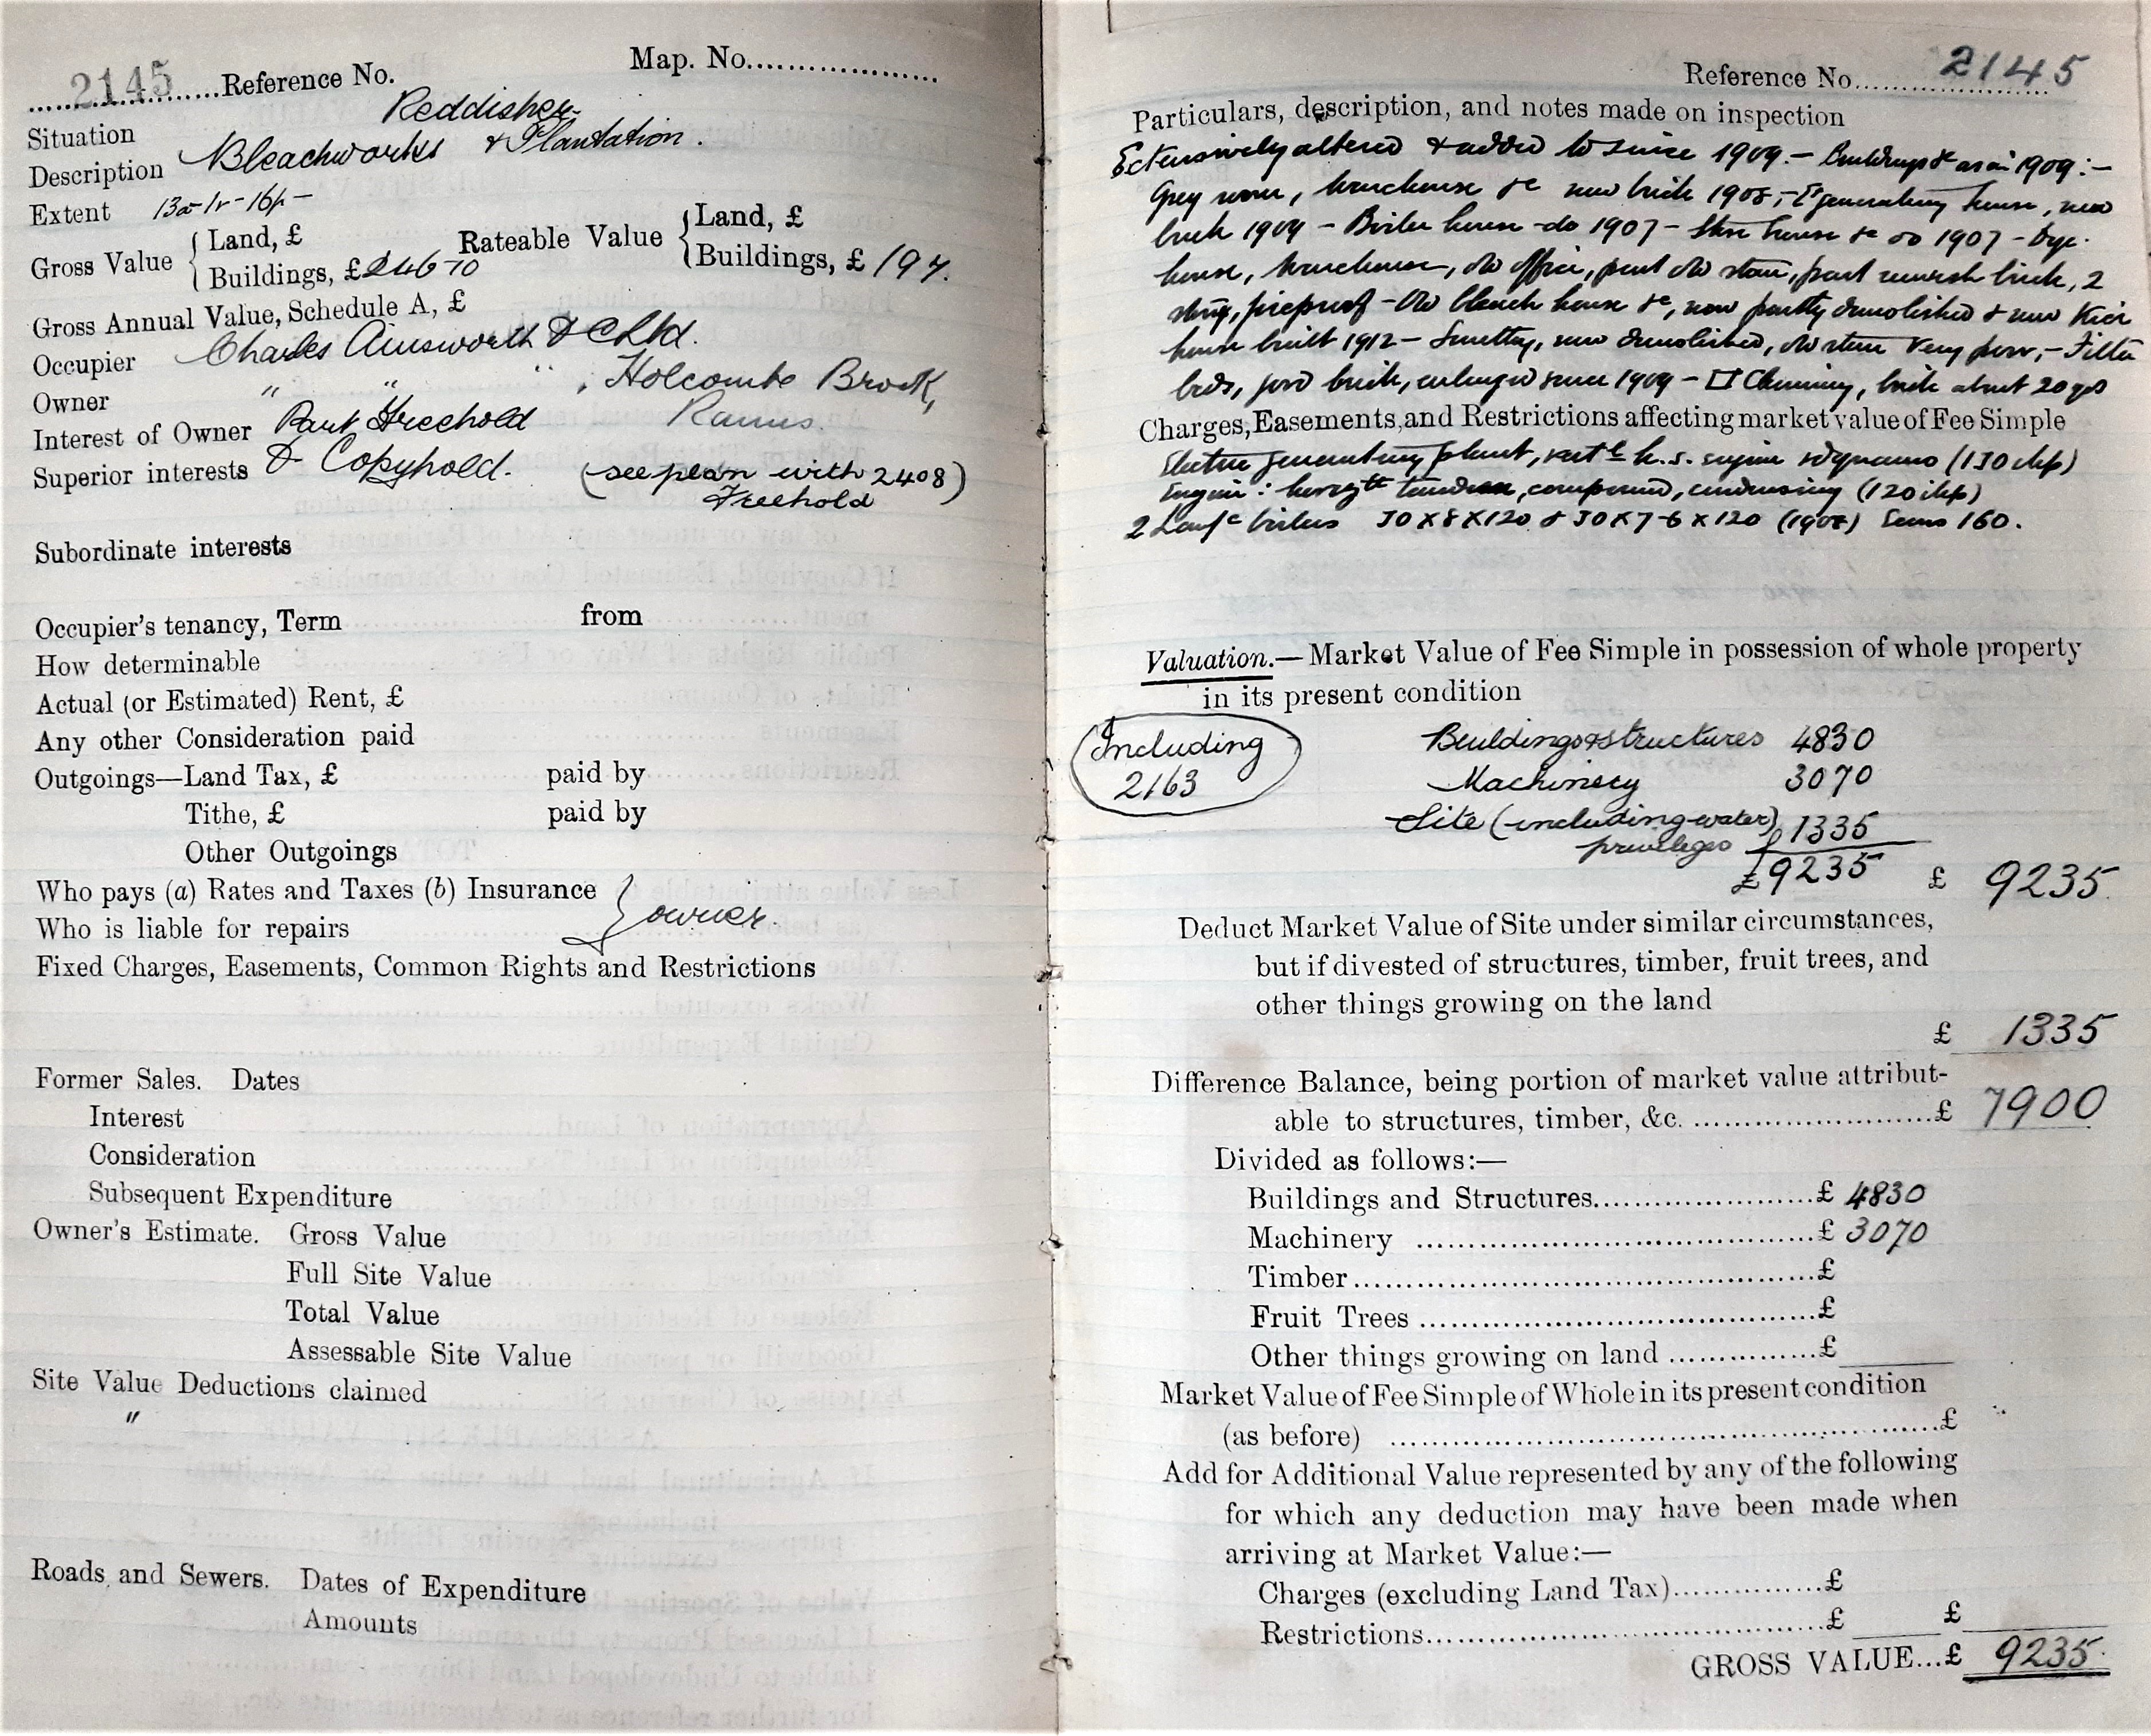 2145 Reference No. Map. No.
Situation Reddisher
Description Bleachworks & Plantation.
Extent 13a-1r-16p-
Gross Value { Land, £ Rateable Value { Land, £
Buildings, £246-10 Buildings, £197.
Gross Annual Value, Schedule A, £
Occupier Charles Ainsworth & Co Ltd.
Owner " " " , Holcombe Brook,
Interest of Owner Part Freehold Rams.
Superior interests & Copyhold. (see plan with 2408)
Freehold
Subordinate interests
Occupier's tenancy, Term from
How determinable
Actual (or Estimated) Rent, £
Any other Consideration paid
Outgoings—Land Tax, £ paid by
Tithe, £ paid by
Other Outgoings
Who pays (a) Rates and Taxes (b) Insurance } owner.
Who is liable for repairs
Fixed Charges, Easements, Common Rights and Restrictions
Former Sales. Dates
Interest
Consideration
Subsequent Expenditure
Owner's Estimate. Gross Value
Full Site Value
Total Value
Assessable Site Value
Site Value Deductions claimed
"
Roads and Sewers. Dates of Expenditure
Amounts
Reference No. 2145
Particulars, description, and notes made on inspection
Extensively altered & added to since 1909.— Buildings &c as in 1909:—
Grey room, warehouse &c new brick 1908,— El generating house, new
brick 1909 – Boiler house do 1907 – Store house &c do 1907 – Dye-
house, warehouse, old office, part old stone, part newish brick, 2
story, fireproof – Old bleach house &c, now partly demolished & new Kier
house built 1912 – Smithy, now demolished, old stone very poor,– Filter
beds, good brick, enlarged since 1909 – □ Chimney, brick about 20 yds
Charges, Easements, and Restrictions affecting market value of Fee Simple
Electric generating plant, vertl h.s. engine & dynamo (130 ihp)
Engine: horiztl tandem, compound, condensing (120 ihp)
2 Lancc boilers 30 x 8 x 120 & 30 x 7-6 x 120 (1908) Econs 160.
Valuation.—Market Value of Fee Simple in possession of whole property
in its present condition
Including
2163
Buildings & structures 4830
Machinery 3070
Site (including water
privileges) 1335
£9235 £ 9235
Deduct Market Value of Site under similar circumstances,
but if divested of structures, timber, fruit trees, and
other things growing on the land
£ 1335
Difference Balance, being portion of market value attribut-
able to structures, timber, &c. £ 7900
Divided as follows:—
Buildings and Structures £ 4830
Machinery £ 3070
Timber £
Fruit Trees £
Other things growing on land £
Market Value of Fee Simple of Whole in its present condition
(as before) £
Add for Additional Value represented by any of the following
for which any deduction may have been made when
arriving at Market Value:—
Charges (excluding Land Tax) £
Restrictions £ £
GROSS VALUE...£ 9235